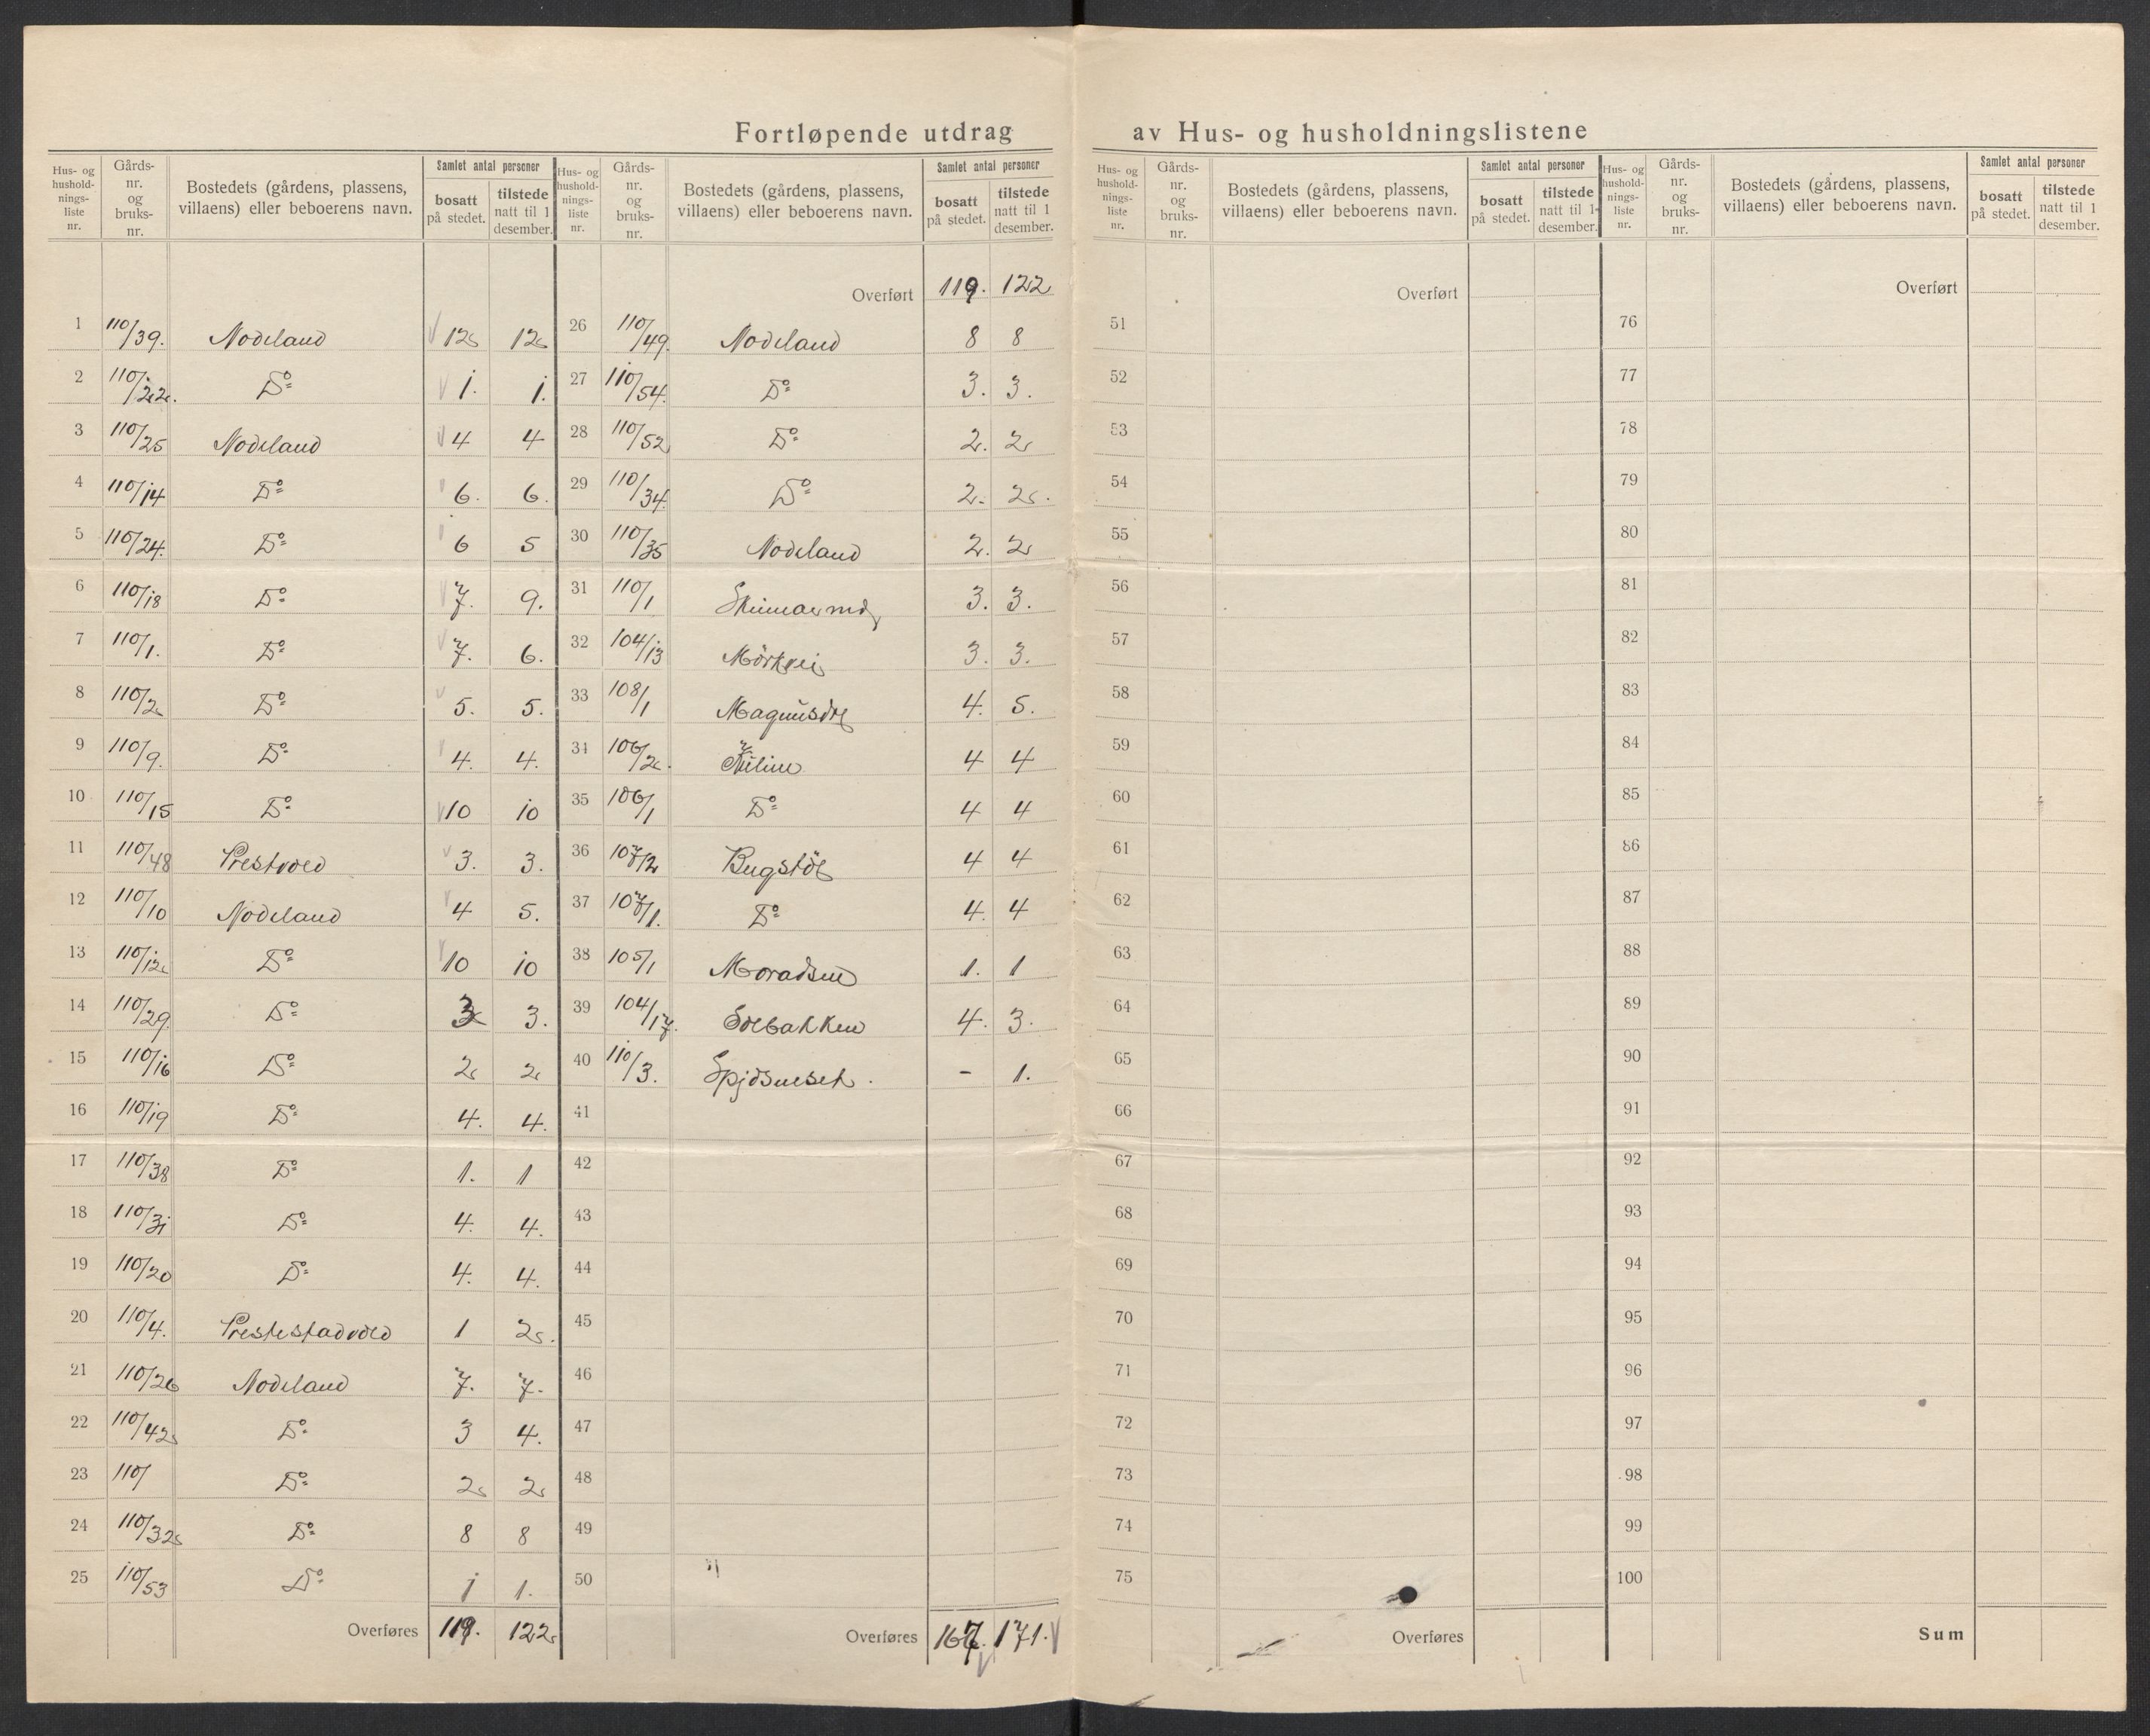 Fortløpende utdrag av Hus- og husholdningslistene
Hus- og hushold-nings-liste nr. | Gårds-nr. og bruks-nr. | Bostedets (gårdens, plassens, villaens) eller beboerens navn. | Samlet antal personer | bosatt på stedet. | tilstede natt til 1 desember.
1 110/39. Nodeland 12 12
2 110/22. Do 1. 1.
3 110/25 Nodeland 4 4
4 110/14 Do 6. 6.
5 110/24. Do 6 5
6 110/18 Do 7. 9.
7 110/1. Do 7. 6.
8 110/2 Do 5. 5.
9 110/9. Do 4. 4.
10 110/15 Do 10 10
11 110/48 Prestvold 3. 3.
12 110/10 Nodeland 4 5.
13 110/12 Do 10 10
14 110/29. Do 3 3.
15 110/16 Do 2 2
16 110/19 Do 4. 4.
17 110/38 Do 1. 1
18 110/31 Do 4. 4.
19 110/20 Do 4. 4.
20 110/4. Prestestadvold 1 2.
21 110/26 Nodeland 7. 7.
22 110/42 Do 3 4.
23 110/ Do 2 2
24 110/32 Do 8 8
25 110/53 Do 1 1.
Overføres 119. 122
Hus- og hushold-nings-liste nr. | Gårds-nr. og bruks-nr. | Bostedets (gårdens, plassens, villaens) eller beboerens navn. | Samlet antal personer | bosatt på stedet. | tilstede natt til 1 desember.
Overført 119. 122
26 110/49. Nodeland 8 8
27 110/54. Do 3. 3.
28 110/52 Do 2. 2
29 110/34. Do 2. 2.
30 110/35 Nodeland 2. 2
31 110/1 3. 3.
32 104/13 3. 3.
33 108/1 4. 5.
34 106/2. 4 4
35 106/1 Do 4 4
36 107/2 Bugstøl 4 4
37 107/1. Do 4. 4
38 105/1 1. 1
39 104/17. Solbakken 4. 3.
40 110/3. - 1.
41
42
43
44
45
46
47
48
49
50
Overføres 167. 171.
Hus- og hushold-nings-liste nr. | Gårds-nr. og bruks-nr. | Bostedets (gårdens, plassens, villaens) eller beboerens navn. | Samlet antal personer | bosatt på stedet. | tilstede natt til 1 desember.
Overført
51
52
53
54
55
56
57
58
59
60
61
62
63
64
65
66
67
68
69
70
71
72
73
74
75
Overføres
Hus- og hushold-nings-liste nr. | Gårds-nr. og bruks-nr. | Bostedets (gårdens, plassens, villaens) eller beboerens navn. | Samlet antal personer | bosatt på stedet. | tilstede natt til 1 desember.
Overført
76
77
78
79
80
81
82
83
84
85
86
87
88
89
90
91
92
93
94
95
96
97
98
99
100
Sum